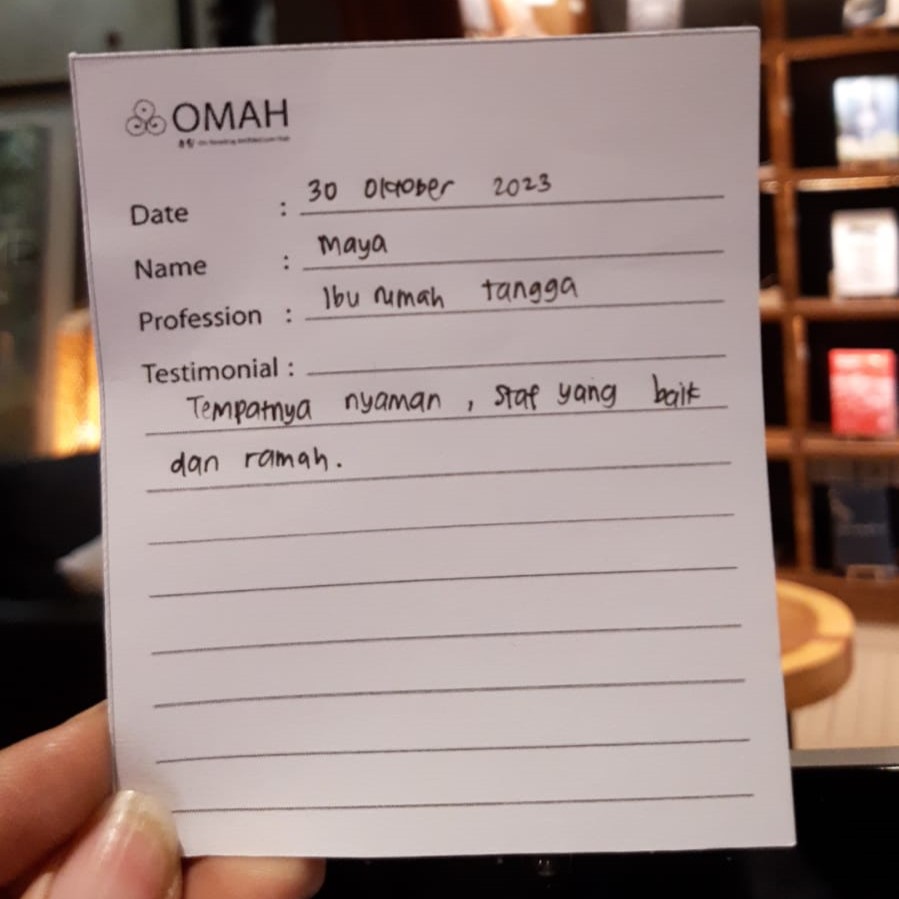 OMAH
Date : 30 Oktober 2023
Name : Maya
Profession : Ibu rumah tangga
Testimonial :
Tempatnya nyaman, staf yang baik
dan ramah.